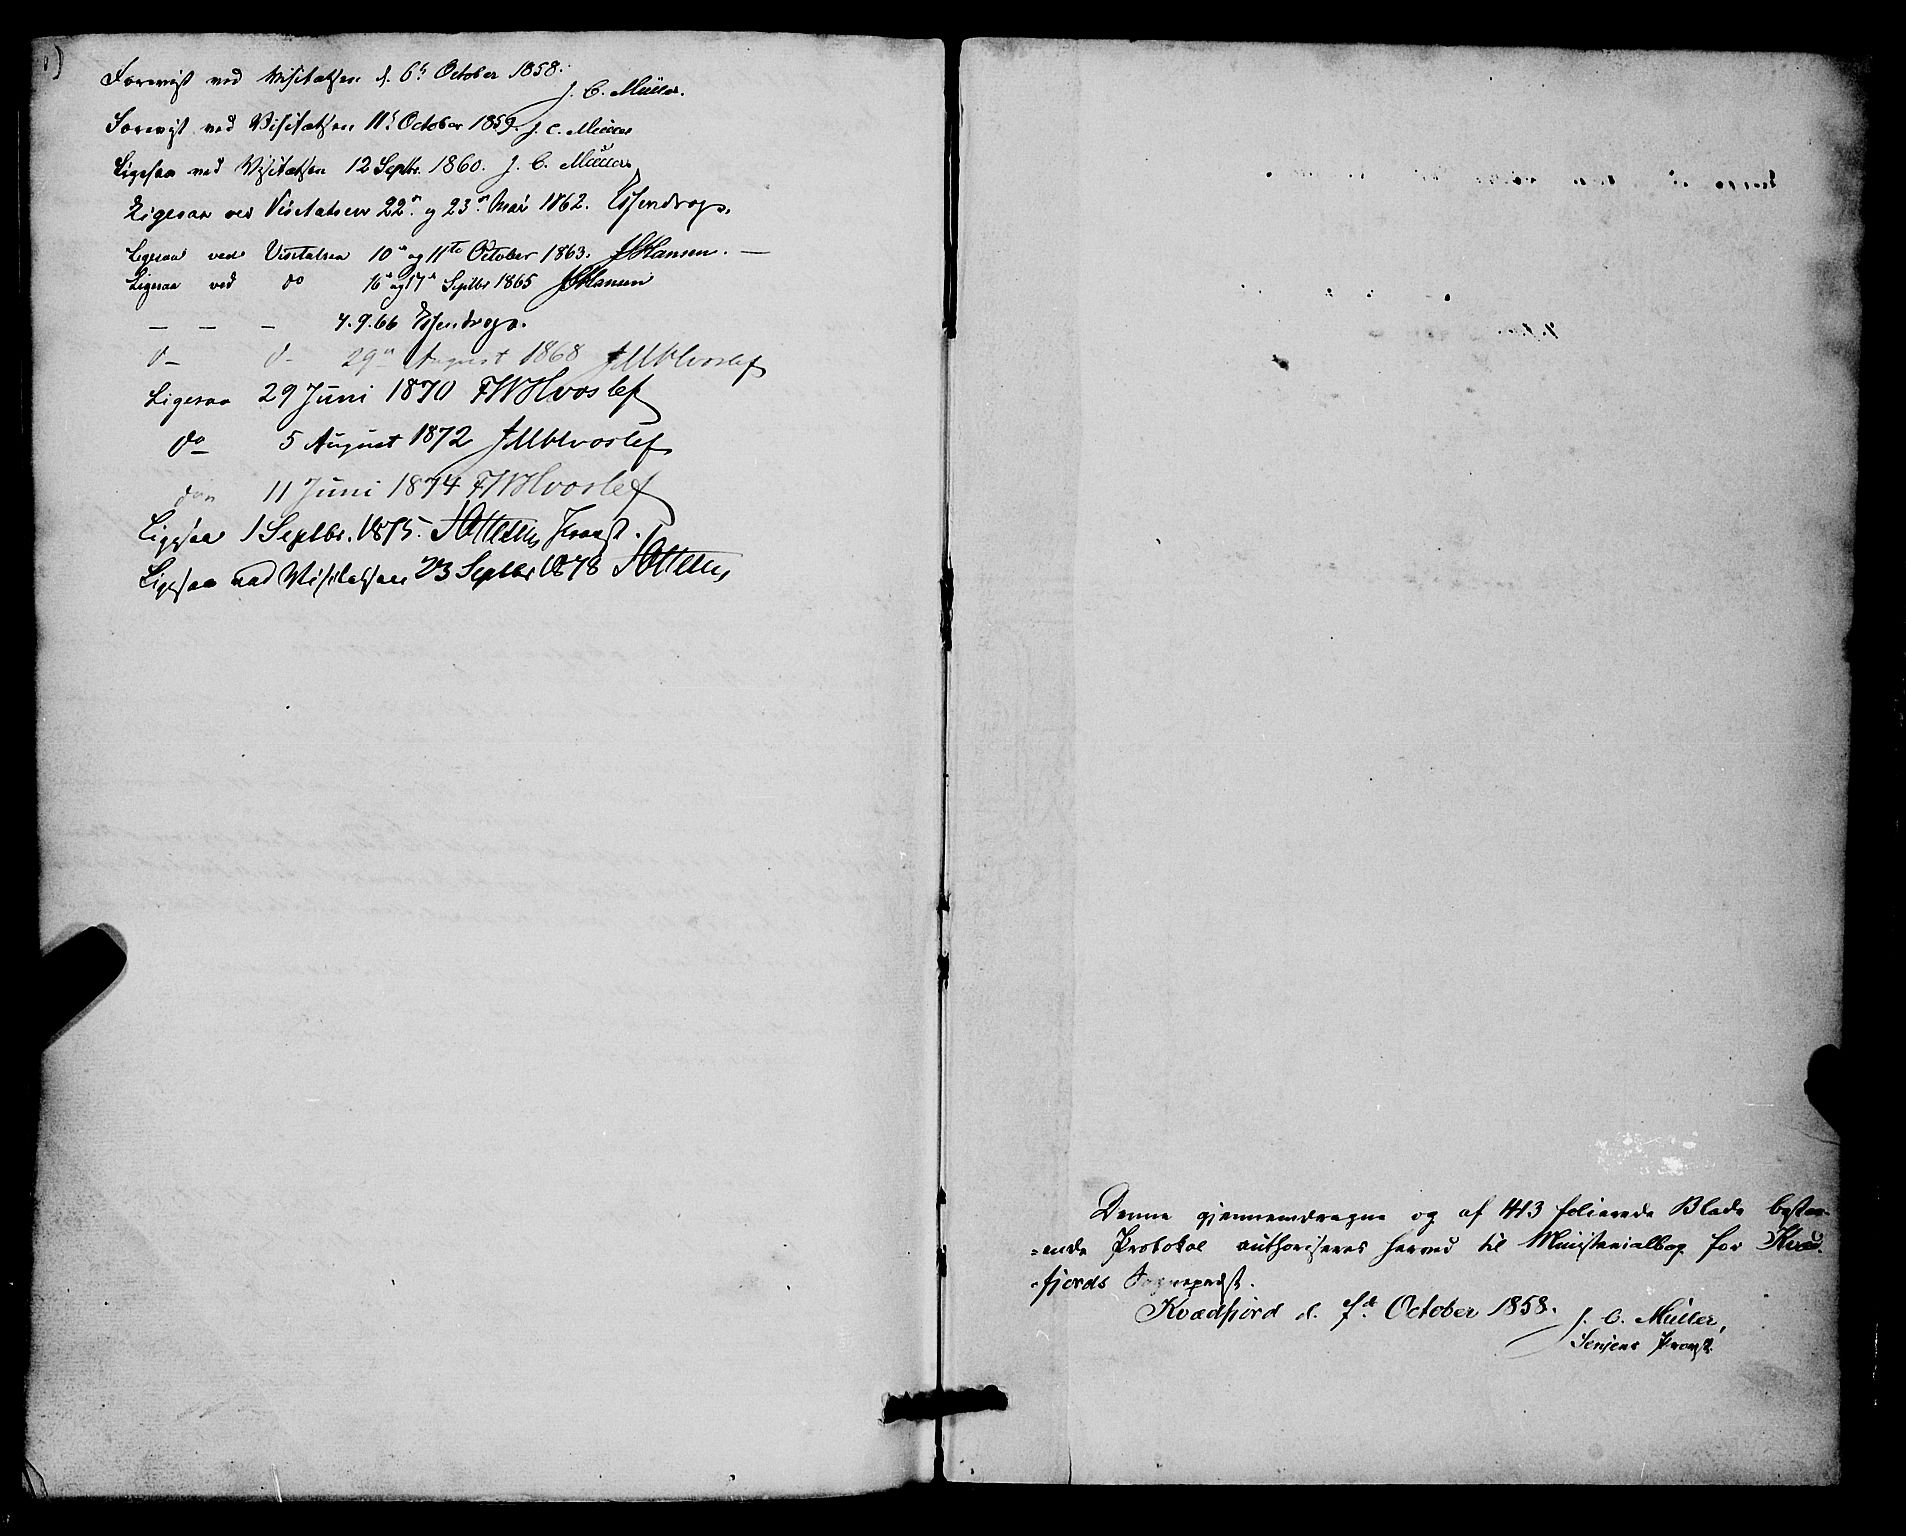 Forevist ved Visitatsen d. 6te October 1858.
J. C. Müller.
Forevist ved Visitatsen 11te October 1859. J. C. Müller
Ligesaa ved Visitatsen 12 Septbr. 1860. J. C. Müller
Ligesaa ved Visitatsen 22n og 23n Mai 1862. Essendrop.
Ligesaa ved Visitatsen 10de og 11te October 1863. Hansen. —
Ligesaa ved do 16de og 17de Septbr 1865 Hansen
— — — 7.9.66 Essendrop.
d— d— 29de August 1868 FWHvoslef
Ligesaa 29 Juni 1870 FWHvoslef
do 5 August 1872 FWHvoslef
11 Juni 1874 FWHvoslef
Ligesaa 1 Septbr. 1875. Provst.
Ligesaa ved Visitatsen 23 Septbr 1878
Denne gjennemdragne og af 413 folierede Blade bestaa-
=ende Protokol authoriseres herved til Ministerialbog for Kvæd-
=fjords Sognepræst.
Kvædfjord d. 7de October 1858.
J. C. Müller,
Senjens Provst.